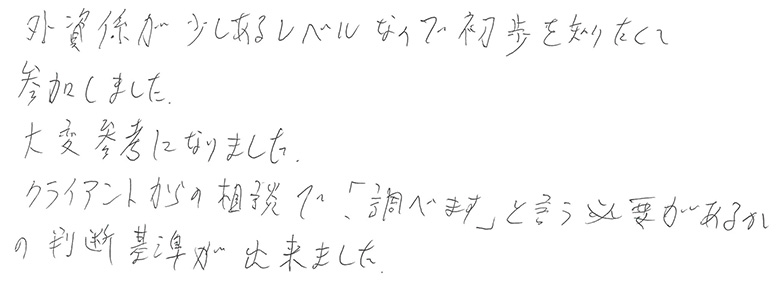 外資係が少しあるレベルなので初歩を知りたくて
参加しました.
大変参考になりました.
クライアントからの相談で、「調べます」と言う必要があるか
の判断基準が出来ました.